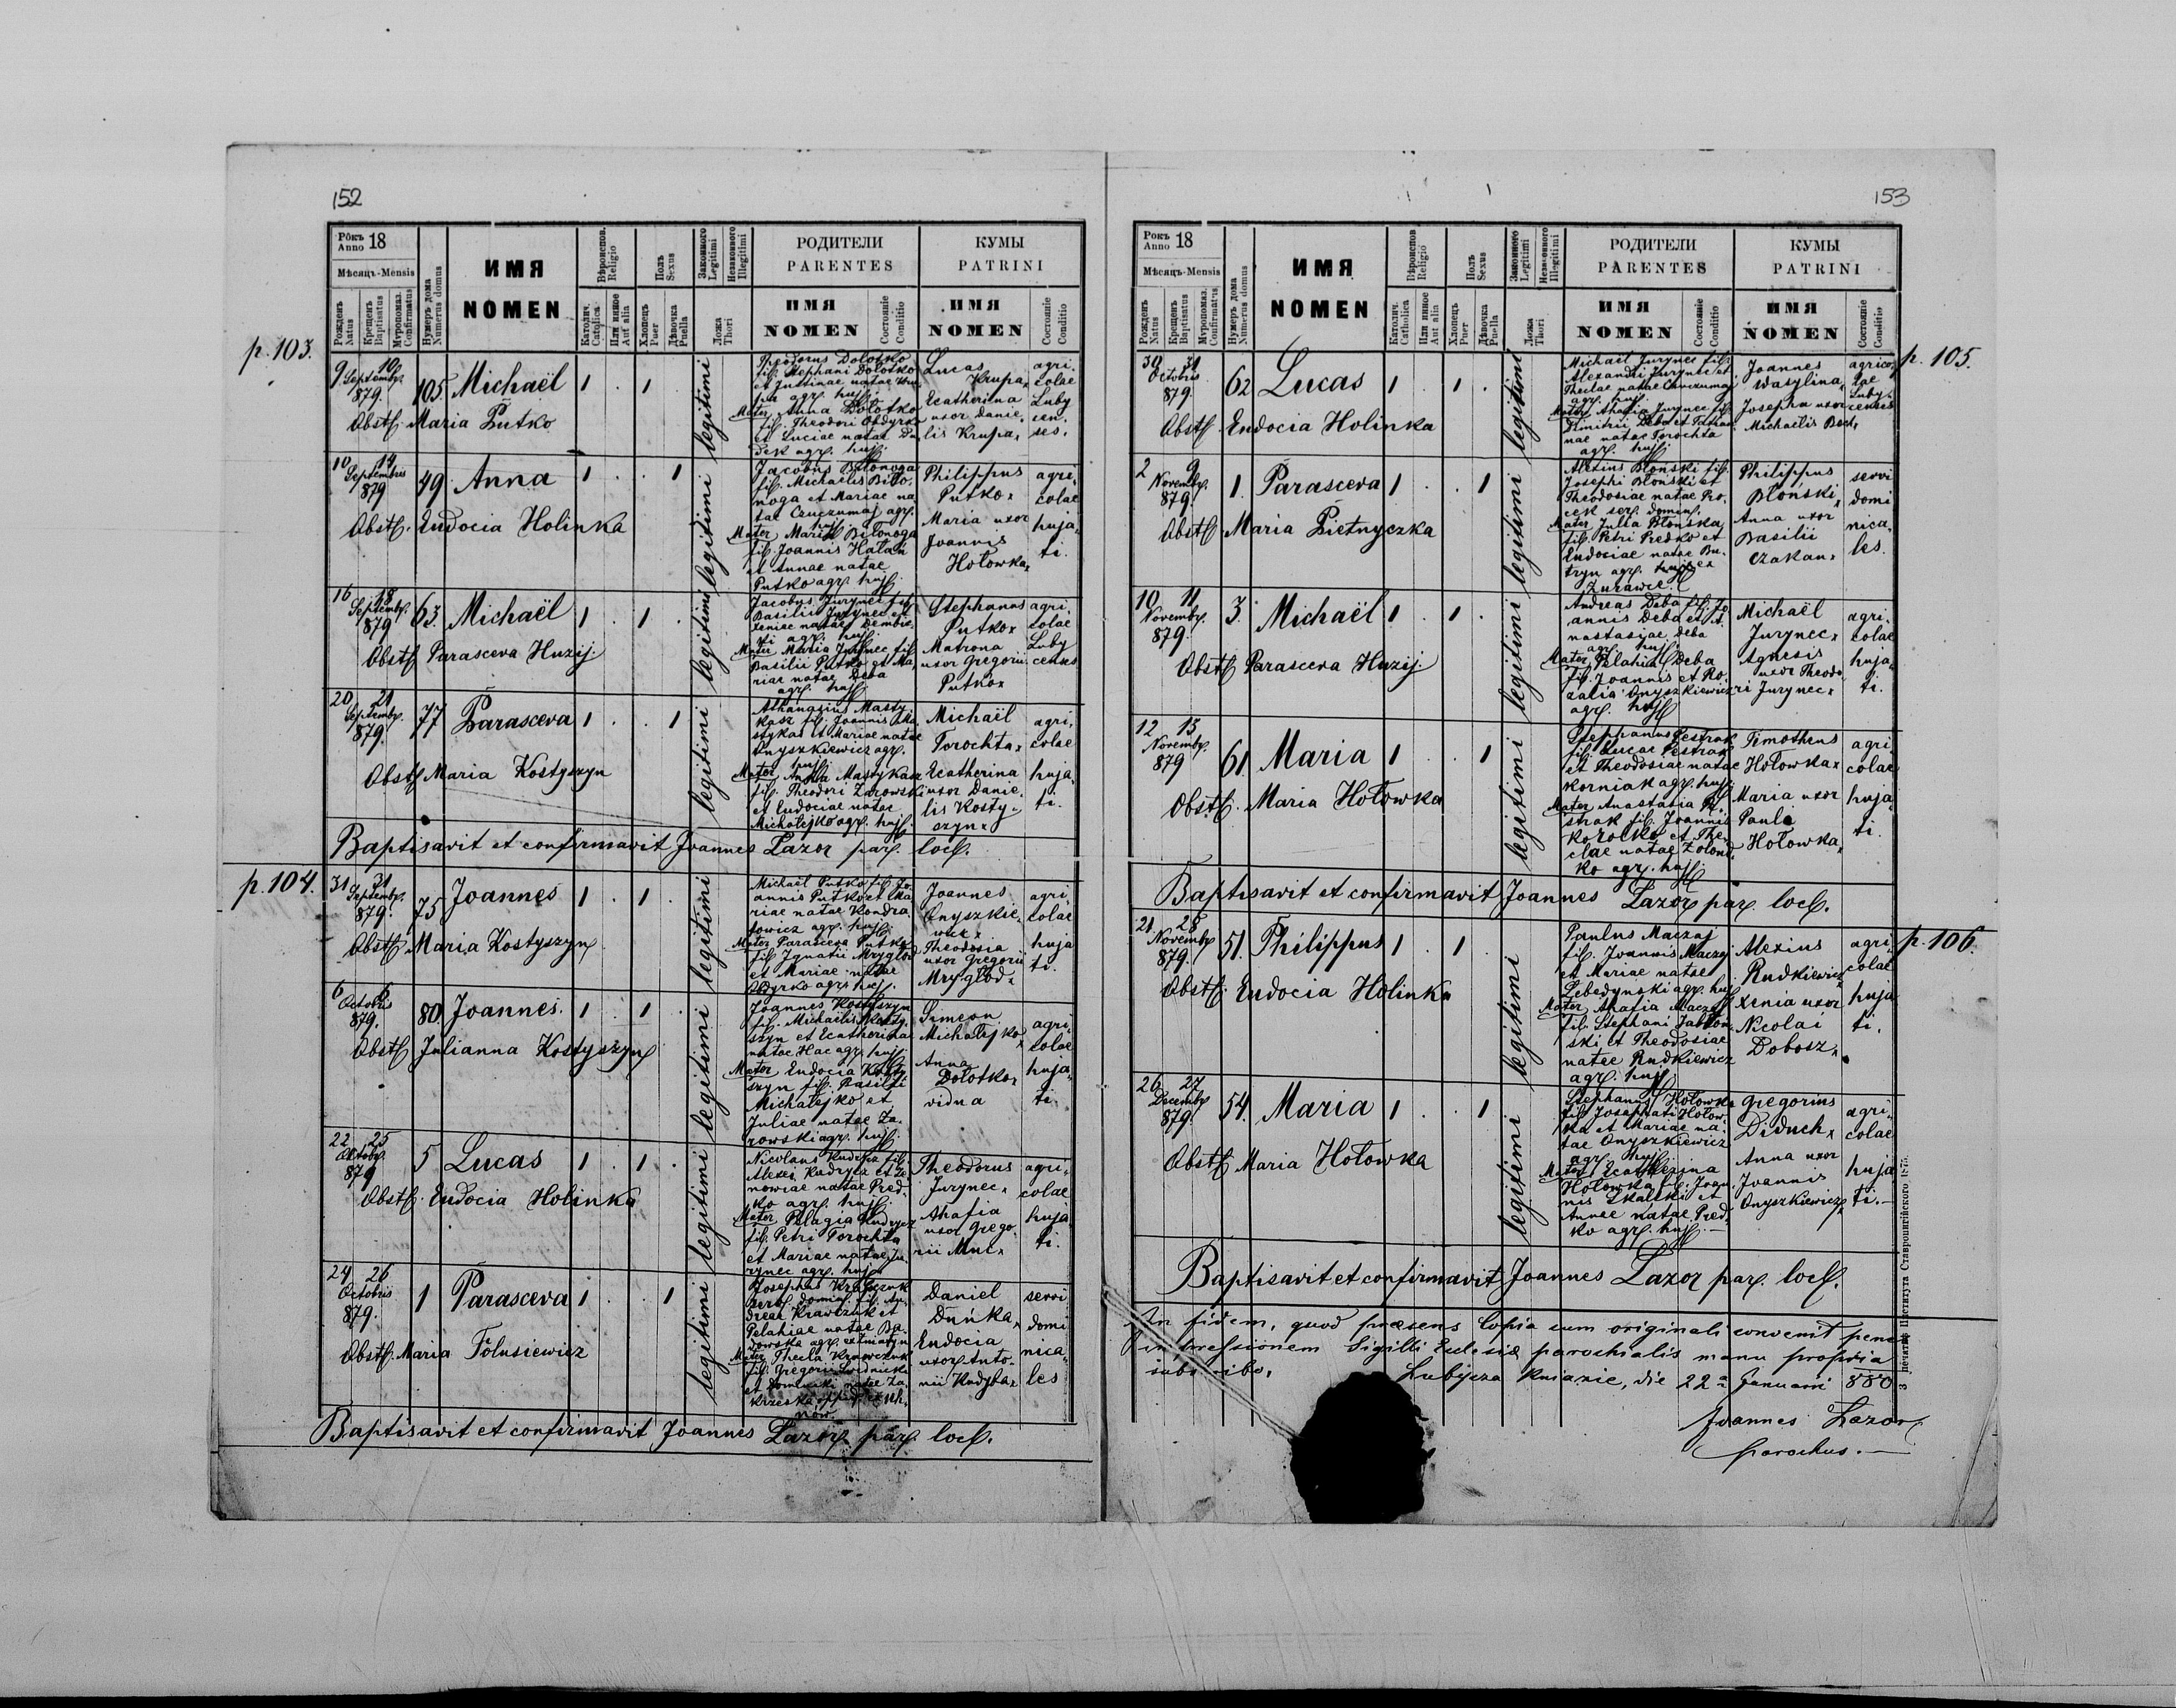 152
Рôкъ Anno 18
Мѣсяцъ-Mensis
Рожденъ Natus
Крещенъ Baptisatus
Мѵропомаз. Confirmatus
Нумеръ дома Numerus domus
ИМЯ
NOMEN
Вѣроисповѣд. Religio
Католич. Catolica
Или инное Aut alia
Полъ Sexus
Хлопецъ Puer
Дѣвочка Puella
Законного Legitimi
Незаконного Illegitimi
Ложа Thori
РОДИТЕЛИ
PARENTES
ИМЯ
NOMEN
Состояніе Conditio
КУМЫ
PATRINI
ИМЯ
NOMEN
Состояніе Conditio
p. 103.
9 10
Septemb.
879.
105. Michaël 1 . 1 .
Obst. Maria Putko
legitimi
Theodorus Dolotko
fil. Stephani Dolotko
et Justinae natae Kru
pa agr. huj.
Mater Anna Dolotko
fil. Theodori
et Luciae natae
agr. huj.
Lucas
Krupa,
Ecatherina
uxor Danie
lis Krupa,
agri
colae
Luby
cen
ses.
10 14
Septembris
879
49 Anna 1 . . 1
Obst. Eudocia Holinka
legitimi
Jacobus Bilonoga
fil. Michaelis Bilo
noga et Mariae na
tae Czuczumaj agr.
huj.
Mater Maria Bilonoga
fil. Joannis Hałan
et Annae natae
Putko agr. huj.
Philippus
Putko
Maria uxor
Joannis
Hołowka,
agri
colae
huja
ti.
16 18
Septemb.
879
63. Michaël 1 . 1 .
Obst. Parasceva Huzij.
legitimi
Jacobus Jurynec fil.
Basilii Jurynec et
Xeniae natae
agr. huj.
Mater Maria Jurynec fil.
Basilii Putko et Ma
riae natae Deba
agr. huj.
Stephanus
Putko
Matrona
uxor Gregorii
Putko
agri
colae
Luby
censes
20 21
Septemb.
879.
77 Parasceva 1 . . 1
Obst. Maria Kostyszyn
legitimi
Athanasius Masty
kasz fil. Joannis Ma
stykasz et Mariae natae
Onyszkiewicz agr.
huj.
Mater Anna Mastykasz
fil. Theodori Zarowski
et Eudociae natae
Michałejko agr. huj.
Michaël
Torochta
Ecatherina
uxor Danie
lis Kosty
szyn
agri
colae
huja
ti.
Baptisavit et confirmavit Joannes Lazor par. loc.
p. 104.
31 31
Septemb.
879.
75 Joannes 1 . 1 .
Obst. Maria Kostyszyn
legitimi
Michaël Putko fil. Jo
annis Putko et Ma
riae natae Kondra
towicz agr. huj.
Mater Parasceva Putko
fil. Ignatii Mrygłod
et Mariae natae
agr. huj.
Joannes
Onyszkie
wicz
Theodosia
uxor Gregorii
Mrygłod
agri
colae
huja
ti.
6 6
Octobris
879.
80 Joannes. 1 . 1 .
Obst. Julianna Kostyszyn
legitimi
Joannes Kostyszyn
fil. Michaëlis Kosty
szyn et Ecatherinae
natae Hac agr. huj.
Mater Eudocia Kosty
szyn fil. Basilii
Michałejko et
Juliae natae Za
rowski agr. huj.
Simeon
Michałejko
Anna
Dolotko
vidua
agri
colae
huja
ti.
22 25
Octobr.
879
5 Lucas 1 . 1 .
Obst. Eudocia Holinka
legitimi
Nicolaus Kudryk fil.
Alexii Kudrycz et Ze
nowiae natae Pred
ko agr. huj.
Mater Pelagia Kudrycz
fil. Petri Torochta
et Mariae natae Ju
rynec agr. huj.
Theodorus
Jurynec
Ahafia
uxor Grego
rii Muc
agri
colae
huja
ti.
24 26
Octobris
879.
1 Parasceva 1 . . 1
Obst. Maria Tolusiewicz
legitimi
Josephus Krawczuk
serv. domin. fil. An
dreae Krawczuk et
Pelahiae natae
agr.
Mater Thecla Krawczuk
fil. Gregorii
natae Za
krzeska
now.
Daniel
Duńka
Eudocia
uxor Anto
nii Kudyba
servi
domi
nica
les
Baptisavit et confirmavit Joannes Lazor par. loc.
153
Рокъ Anno 18
Мѣсяцъ-Mensis
Рожденъ Natus
Крещенъ Baptisatus
Мѵропомаз. Confirmatus
Нумеръ дома Numerus domus
ИМЯ
NOMEN
Вѣроисповѣд Religio
Католич. Catholica
Или инное Aut alia
Полъ Sexus
Хлопецъ Puer
Дѣвочка Puella
Законного Legitimi
Незаконного Illegitimi
Ложа Thori
РОДИТЕЛИ
PARENTES
ИМЯ
NOMEN
Состояніе Conditio
КУМЫ
PATRINI
ИМЯ
NOMEN
Состояніе Conditio
p. 105.
30 31
Octobris
879.
62 Lucas 1 . 1 .
Obst. Eudocia Holinka
legitimi
Michaël Jurynec fil.
Alexandri Jurynec et
Theclae natae Czuczumaj
agr. huj.
Mater Ahafia Jurynec fil.
Dimitrii Deba et Tatian
nae natae Torochta
agr. huj.
Joannes
Wasylina,
Josepha uxor
Michaëlis Bach,
agrico
lae
Luby
censes
2 9
Novemb.
879.
1. Parasceva 1 . . 1
Obst. Maria Pietnyczka
legitimi
Alexius Błonski fil.
Josephi Błonski et
Theodosiae natae Ro
cek serv. domin.
Mater Julia Błonska
fil. Petri Predko et
Eudociae natae Bu
tryn agr. ex
Zurawce.
Philippus
Błoński
Anna uxor
Basilii
Czakan
servi
domi
nica
les.
10 11
Novemb.
879.
3. Michaël 1 . 1 .
Obst. Parasceva Huzij.
legitimi
Andreas Deba fil. Jo
annis Deba et A
nastasiae Deba
agr. huj.
Mater Pelahia Deba
fil. Joannis et Ro
zalia Onyszkiewicz
agr. huj.
Michaël
Jurynec
Agnesis
uxor Theodo
ri Jurynec
agri
colae
huja
ti.
12 13
Novemb.
879
61 Maria 1 . . 1
Obst. Maria Hołowka
legitimi
Stephanus Pestrak
fil. Lucae Pestrak
et Theodosiae natae
Korniak agr. huj.
Mater Anastasia Pe
strak fil. Joannis
Korolko et The
clae natae Zolond
ko agr. huj.
Timotheus
Hołowka
Maria uxor
Pauli
Hołowka,
agri
colae
huja
ti.
Baptisavit et confirmavit Joannes Lazor par. loc.
p. 106.
21 28
Novemb
879.
51. Philippus 1 . 1
Obst. Eudocia Holinka
legitimi
Paulus Maczaj
fil. Joannis Maczaj
et Mariae natae
Lebedynski agr. huj.
Mater Ahafia Maczaj
fil. Stephani Jabłon
ski et Theodosiae
natae Rudkiewicz
agr. huj.
Alexius
Rudkiewicz
Xenia uxor
Nicolai
Dobosz
agri
colae
huja
ti.
26 27
Decemb.
879.
54. Maria 1 . . 1
Obst. Maria Hołowka
legitimi
Stephanus Hołowka
fil. Josaphati Hołow
ka et Mariae na
tae Onyszkiewicz
agr. huj.
Mater Ecatherina
Hołowka fil. Joan
nis Skalski et
Annae natae Pred
ko agr. huj.
Gregorius
Diduch
Anna uxor
Joannis
Onyszkiewicz
agri
colae
huja
ti.
Baptisavit et confirmavit Joannes Lazor par. loc.
In fidem, quod praesens Copia cum originali convenit penes
impressionem Sigilli Eclesiae parochialis manu propria
subscribo.
Lubycza Kniazie, die 22ª Januarii 880
Joannes Lazor
parochus.
Института Ставропигійского 1875.